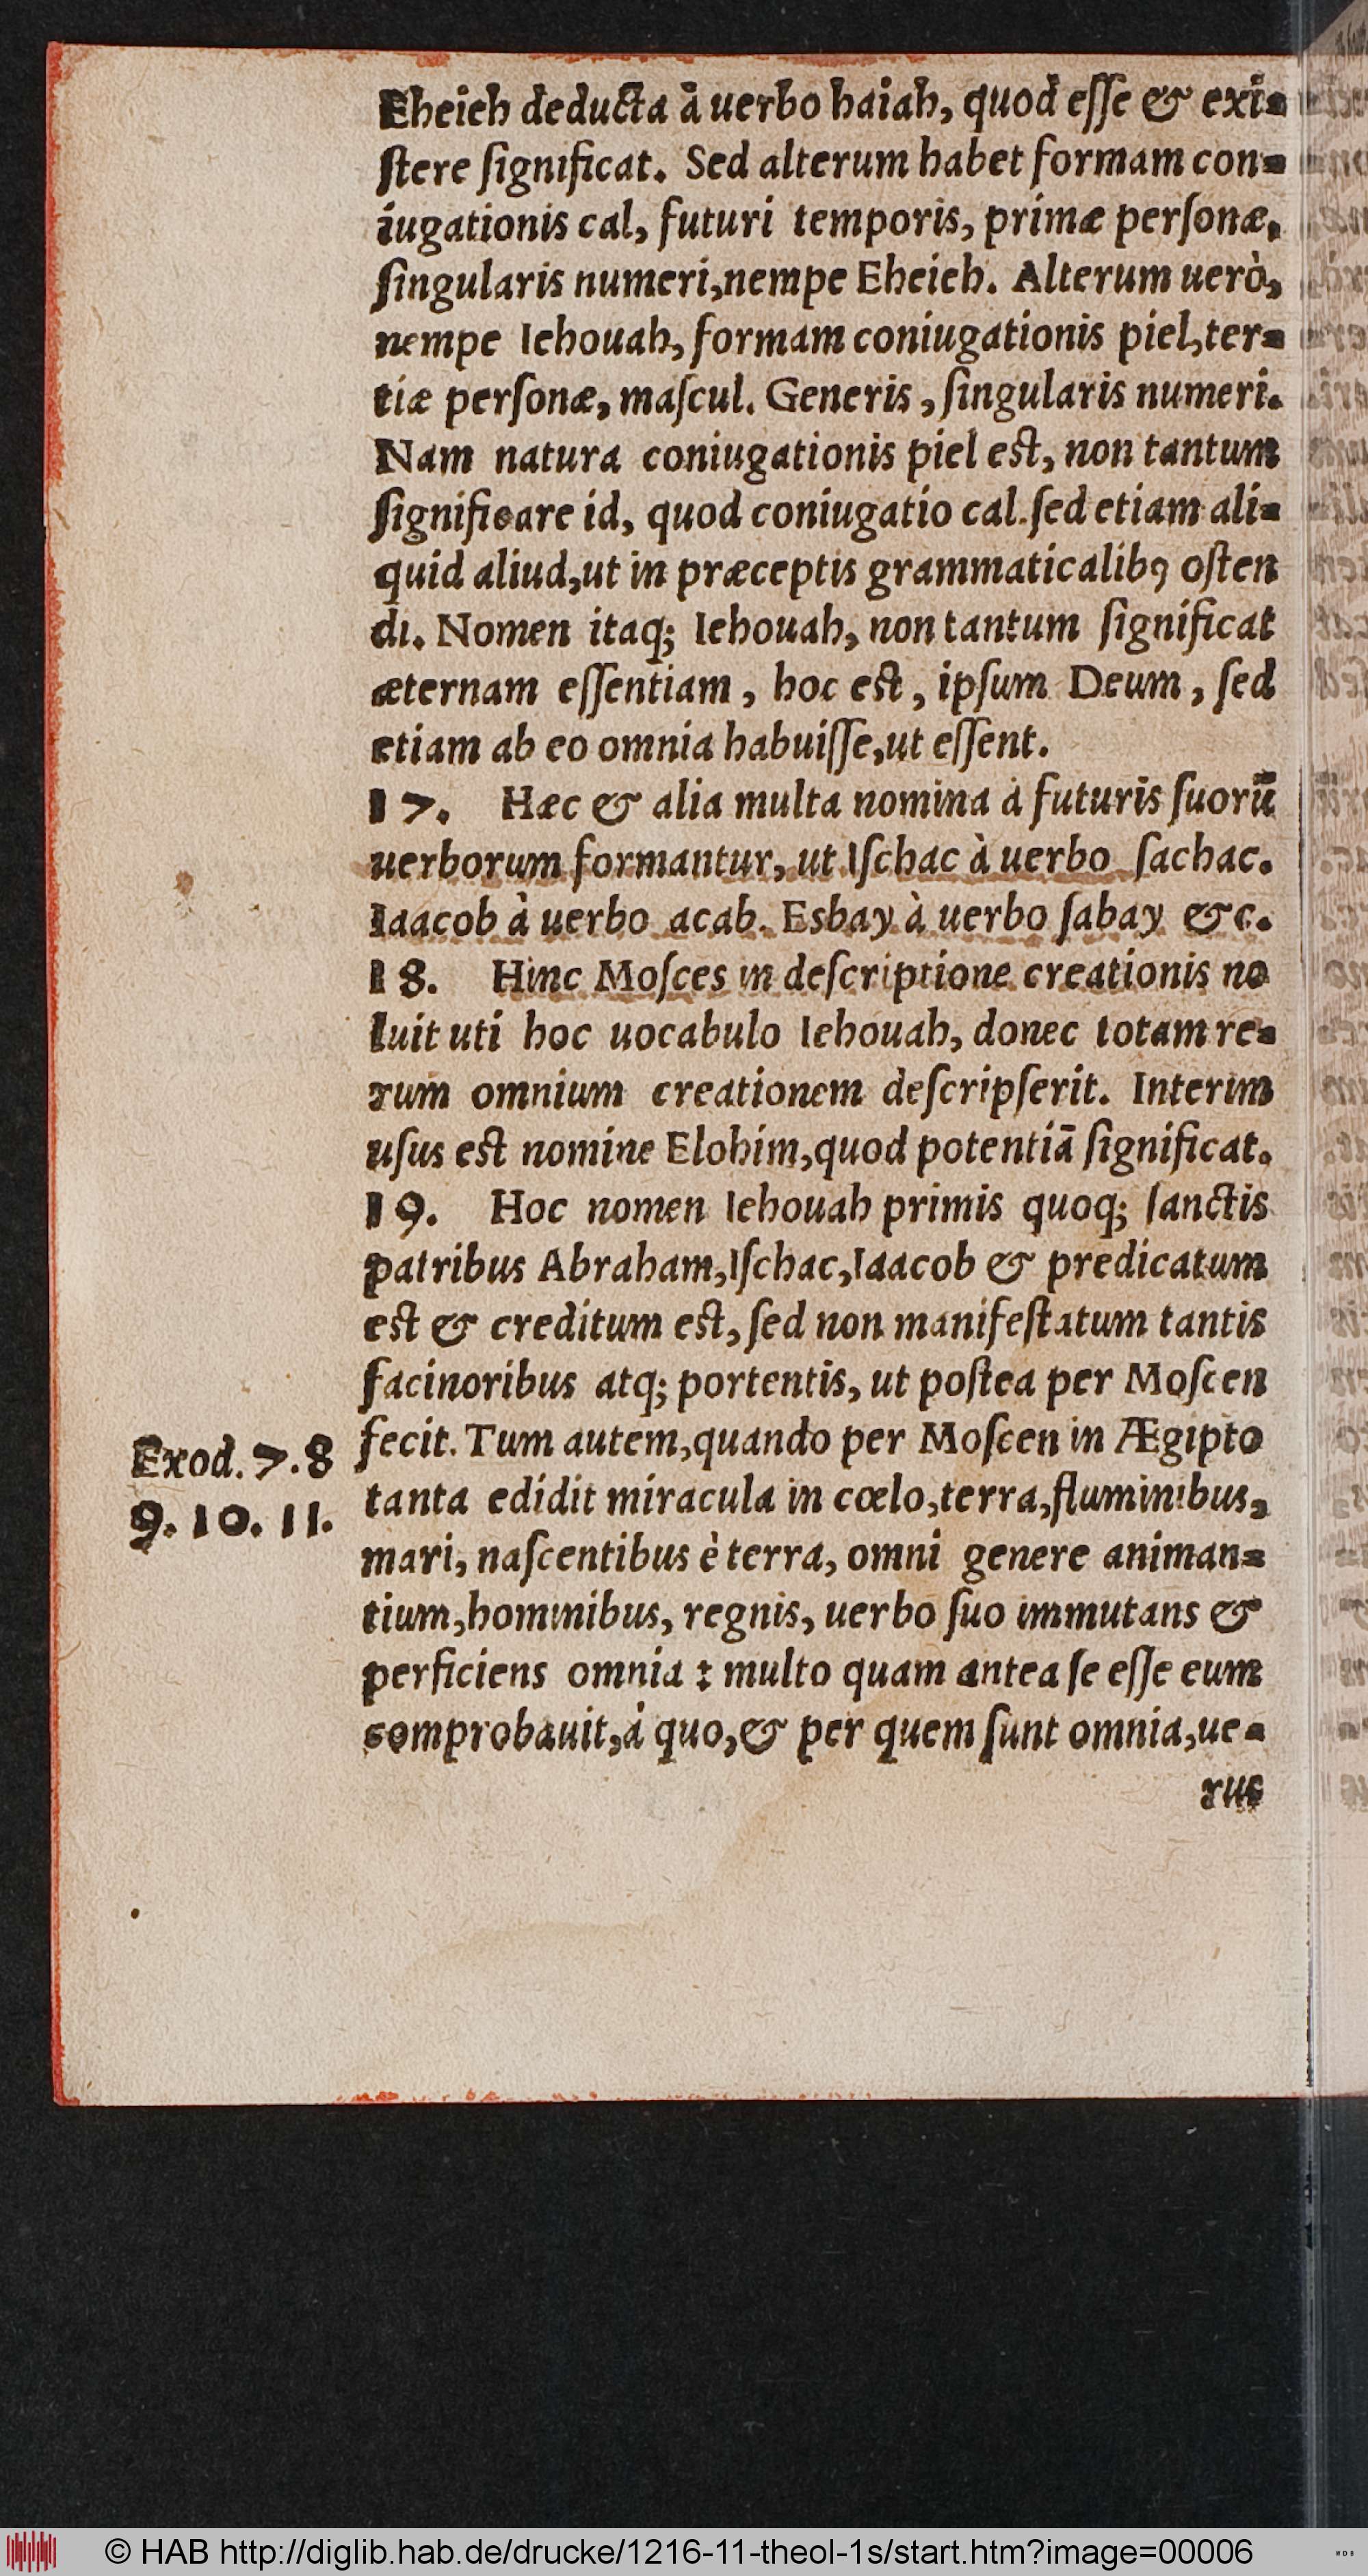 Eheieh deducta à uerbo haiah, quod eſſe & exi=
ſtere ſignificat. Sed alterum habet formam con=
iugationis cal, futuri temporis, primæ perſonæ,
ſingularis numeri, nempe Eheieh. Alterum uerò,
nempe Iehouah, formam coniugationis piel, ter=
tiæ perſonæ, maſcul. Generis, ſingularis numeri.
Nam natura coniugationis piel eſt, non tantum
ſignificare id, quod coniugatio cal. ſed etiam ali=
quid aliud, ut in præceptis grammaticalibꝰ oſten
di. Nomen itaq; Iehouah, non tantum ſignificat
æternam eſſentiam, hoc eſt, ipſum Deum, ſed
etiam ab eo omnia habuiſſe, ut eſſent.
17. Hæc & alia multa nomina à futuris ſuorū
uerborum formantur, ut Iſchac à uerbo ſachac.
Iaacob à uerbo acab. Esbay à uerbo ſabay &c.
18. Hinc Moſces in deſcriptione creationis no
luit uti hoc uocabulo Iehouah, donec totam re=
rum omnium creationem deſcripſerit. Interim
uſus eſt nomine Elohim, quod potentiā ſignificat.
19. Hoc nomen Iehouah primis quoq; ſanctis
patribus Abraham, Iſchac, Iaacob & predicatum
eſt & creditum eſt, ſed non manifeſtatum tantis
facinoribus atq; portentis, ut poſtea per Moſcen
fecit. Tum autem, quando per Moſcen in Ægipto
tanta edidit miracula in cœlo, terra, fluminibus,
mari, naſcentibus è terra, omni genere animan=
tium, hominibus, regnis, uerbo ſuo immutans &
perficiens omnia : multo quam antea ſe eſſe eum
comprobauit, à quo, & per quem ſunt omnia, ue=
rus
Exod. 7. 8
9. 10. 11.
© HAB http://diglib.hab.de/drucke/1216-11-theol-1s/start.htm?image=00006